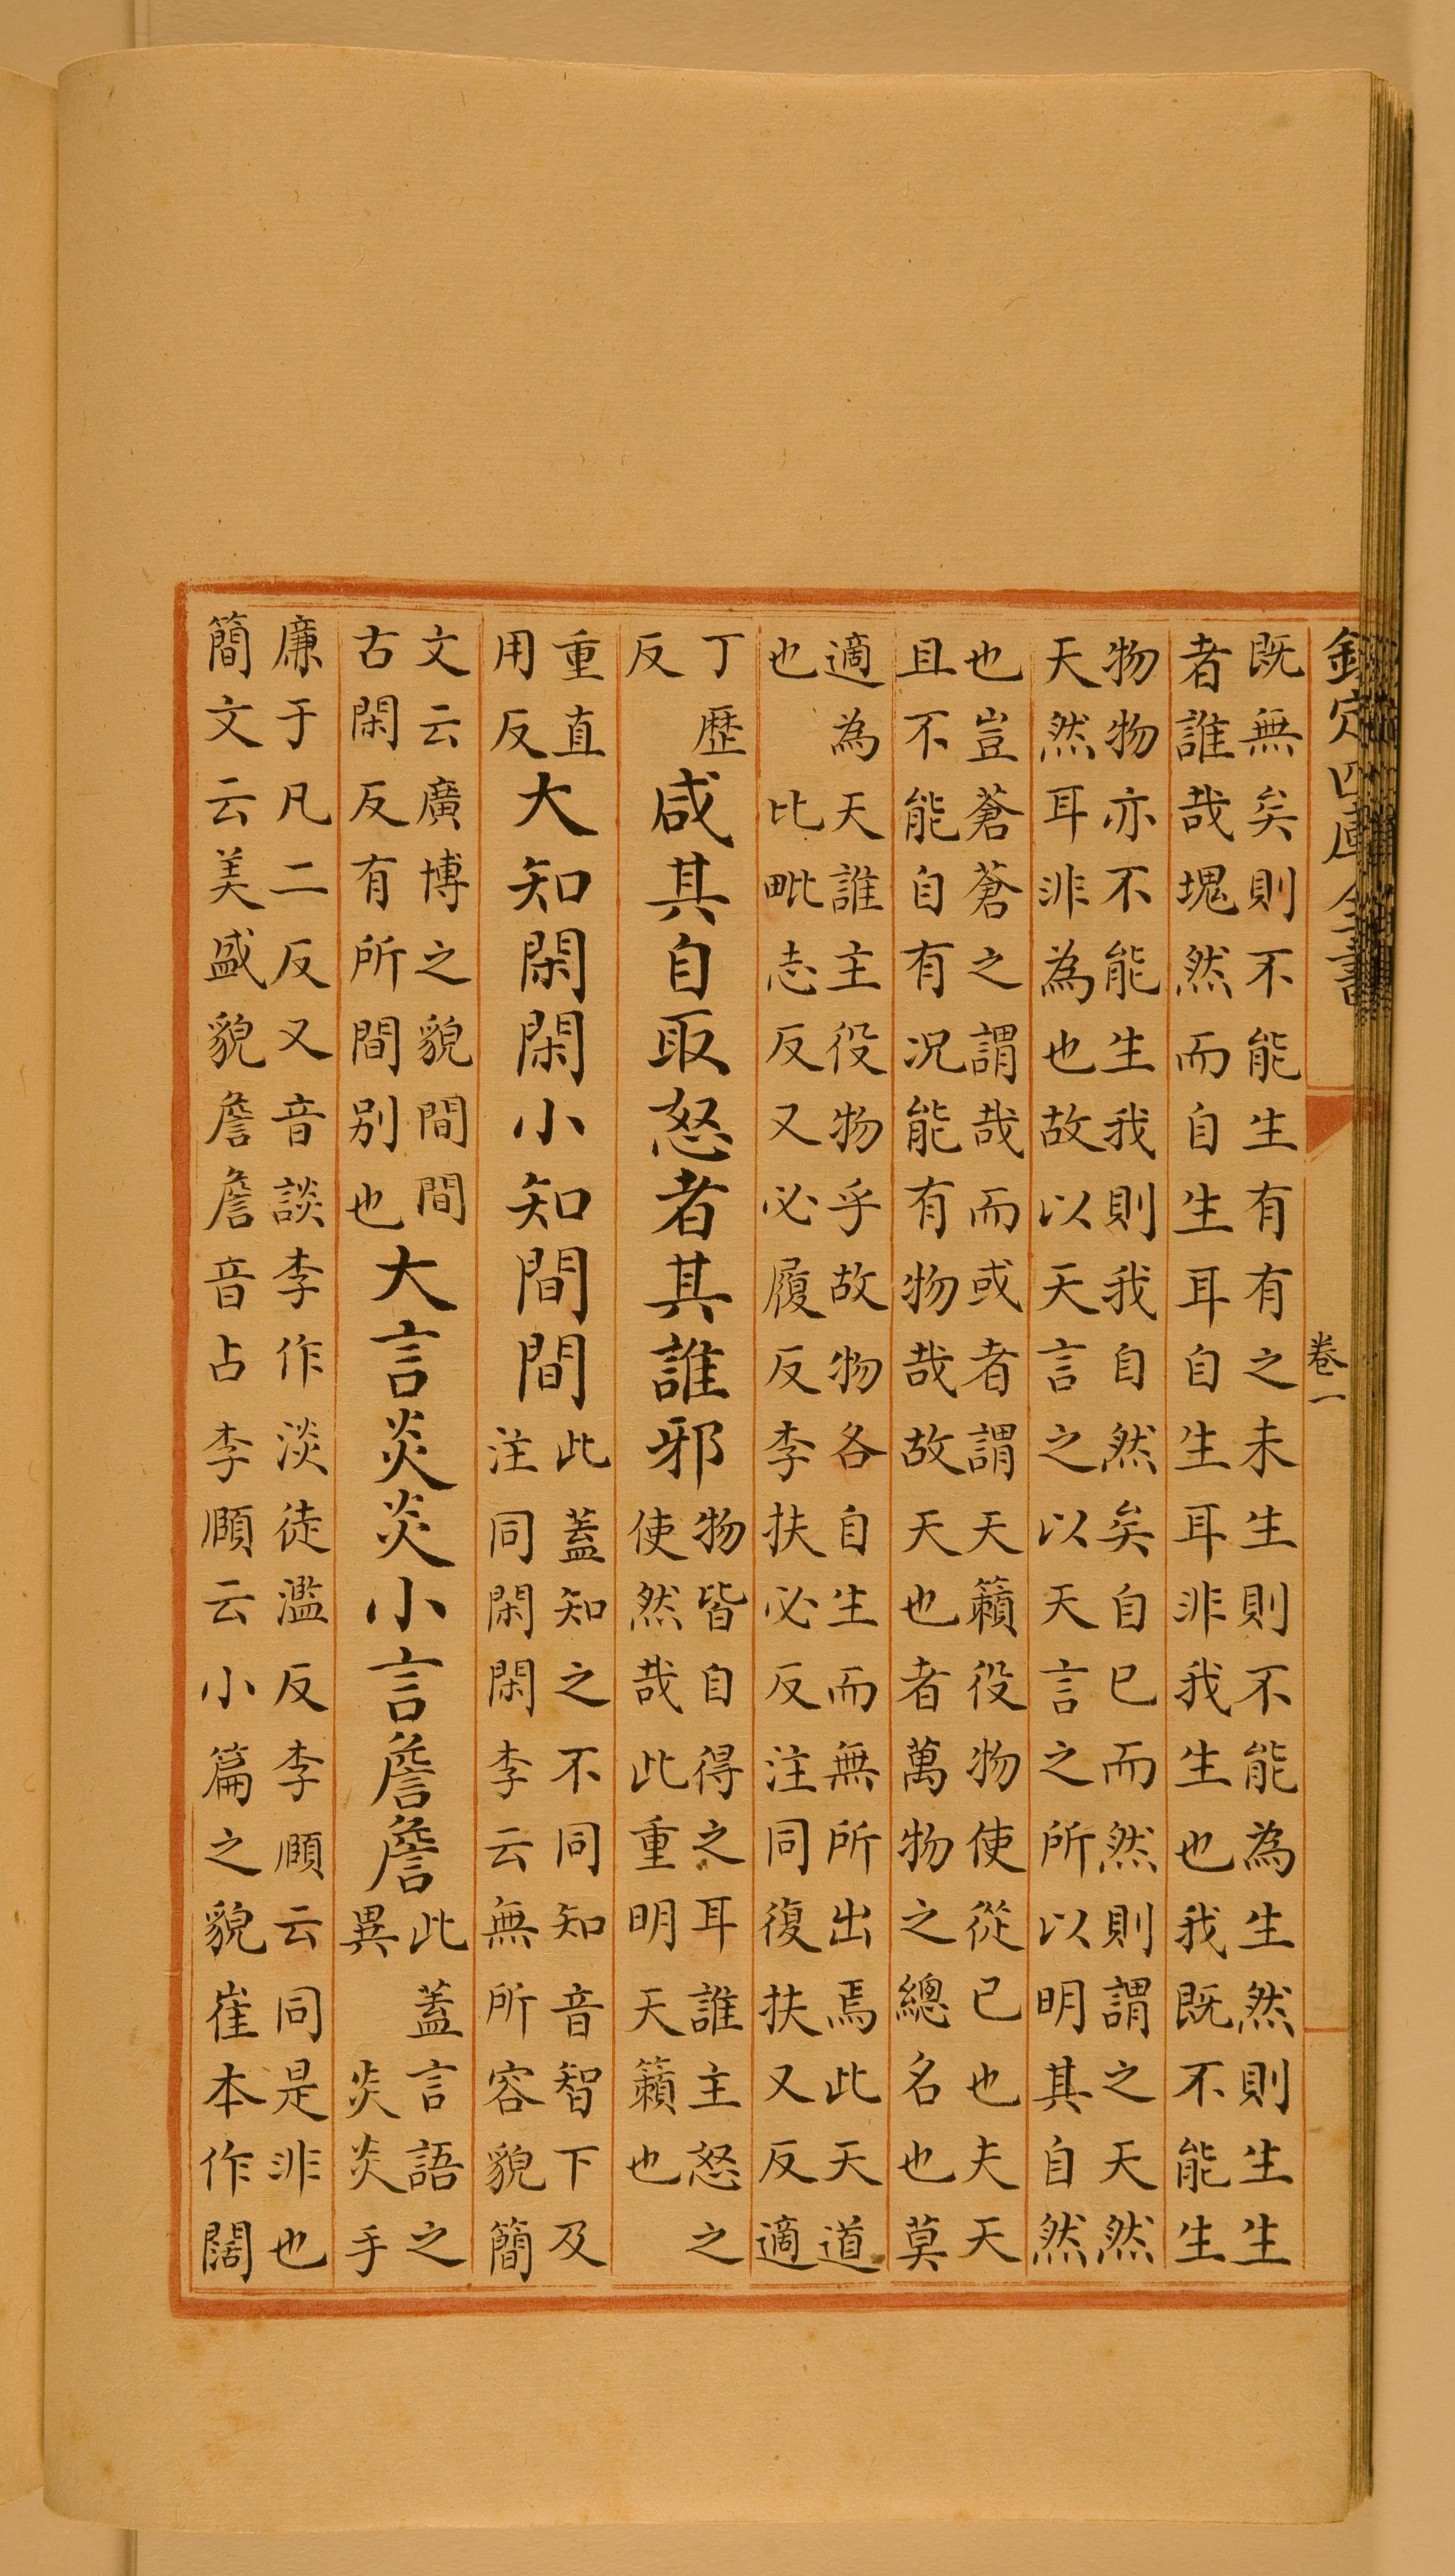 欽定四庫全書
卷一
既無矣則不能生有有之未生則不能為生然則生生
者誰哉塊然而自生耳自生耳非我生也我既不能生
物物亦不能生我則我自然矣自已而然則謂之天然
天然耳非為也故以天言之以天言之所以明其自然
也豈蒼蒼之謂哉而或者謂天籟役物使從已也夫天
且不能自有况能有物哉故天也者萬物之總名也莫
適為天誰主役物乎故物各自生而無所出焉此天道
也 比毗志反又必履反李扶必反注同復扶又反適
丁歷
反
咸其自取怒者其誰邪
物皆自得之耳誰主怒之
使然哉此重明天籟也
重直
用反
大知閑閑小知間間
此蓋知之不同知音智下及
注同閑閑李云無所容貌簡
文云廣博之貌間間
古閑反有所間别也
大言炎炎小言詹詹
此蓋言語之
異 炎炎手
廉于凡二反又音談李作淡徒濫反李頤云同是非也
簡文云美盛貌詹詹音占李頤云小篇之貌崔本作閻